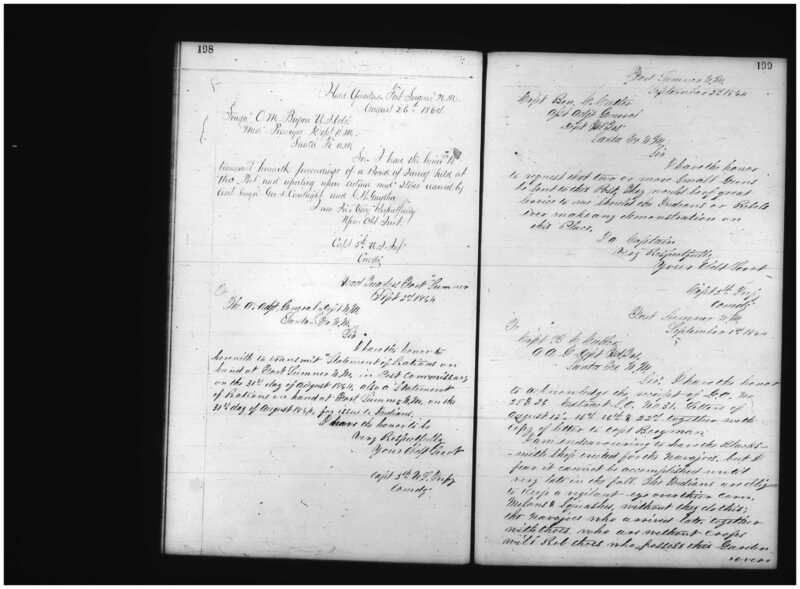 198
Head Quarters Fort Sumner N.M.
August 26th 1864
Surgn O. M. Bryan U.S. Vols
Med. Dept N.M.
Santa Fe N.M.
Sir. I have the honor to
transmit herewith proceedings of a Board of Survey held at
this Post and upon certain med stores received by
Geo. S. and
I am Sir Very Respectfully
Your Obt Servt.
Capt 5th U.S. Inf
Comdg
Head Quarters Fort Sumner
Sept 2d 1864
To
The A. Adjt General Dept N.M.
Santa Fe N.M.
Sir
I have the honor to
herewith to transmit Statement of Rations on
hand at Fort Sumner N.M. in Post Commissary
on the 31st day of August 1864, also a Statement
of Rations on hand at Fort Sumner N.M. on the
31st day of August 1864, for issue to Indians.
I have the honor to be
Very Respectfully
Your Obt Servt
Capt 5th U.S. Infy
Comdg
199
Fort Sumner N.M.
September 3d 1864
Capt Ben. C. Cutler
Asst Adjt General
Dept N.M.
Santa Fe N.M.
Sir
I have the honor
to request that two or more Small Guns
be sent to this Post. They would be of great
service to us should the Indians or Rebels
ever make any demonstration on
this Place.
I a Captain
Very Respectfully
Your Obt Servt
Capt 5th Infy
Comdg
Fort Sumner N.M.
September 1864
To
Capt B. C. Cutler
A.A.G. Dept
Santa Fe N.M.
Sir, I have the honor
to acknowledge the receipt of G.O. No
Letters of
August together with
copy of letter to Capt
I am endeavoring to have the Blacks-
-mith Shop erected for the Navajoes, but I
fear it cannot be accomplished until
very late in the fall. The Indians are obliged
to keep a vigilant eye over their Corn
Melons & Squashes, without they do this;
the Navajoes who arrived late, together
with those who are without Crops
will Rob those who possess this Garden